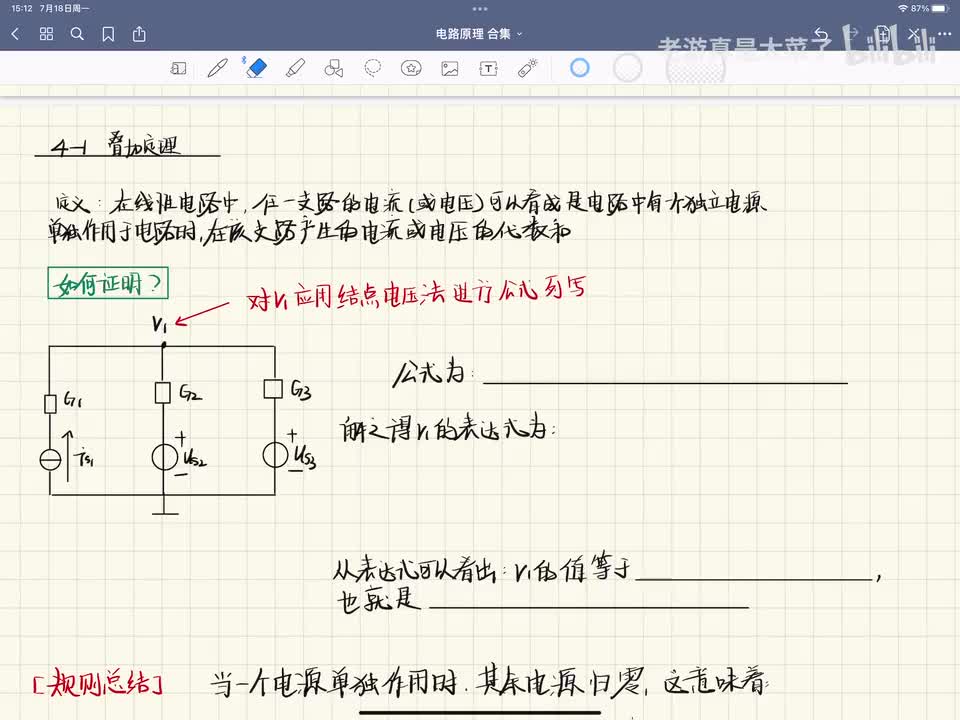 15:12 7月18日周一
87%
电路原理 合集
老游真是太菜了 bilibili
4-1 叠加定理
定义：在线性电路中，任一支路的电流(或电压)可以看成是电路中每个独立电源
单独作用于电路时，在该支路产生的电流或电压的代数和
如何证明？
对V1应用结点电压法进行公式列写
V1
G1
G2
G3
公式为：
解之得V1的表达式为：
is1
+
Us2
-
+
Us3
-
从表达式可以看出：V1的值等于 ，
也就是
[规则总结] 当一个电源单独作用时，其余电源归零，这意味着